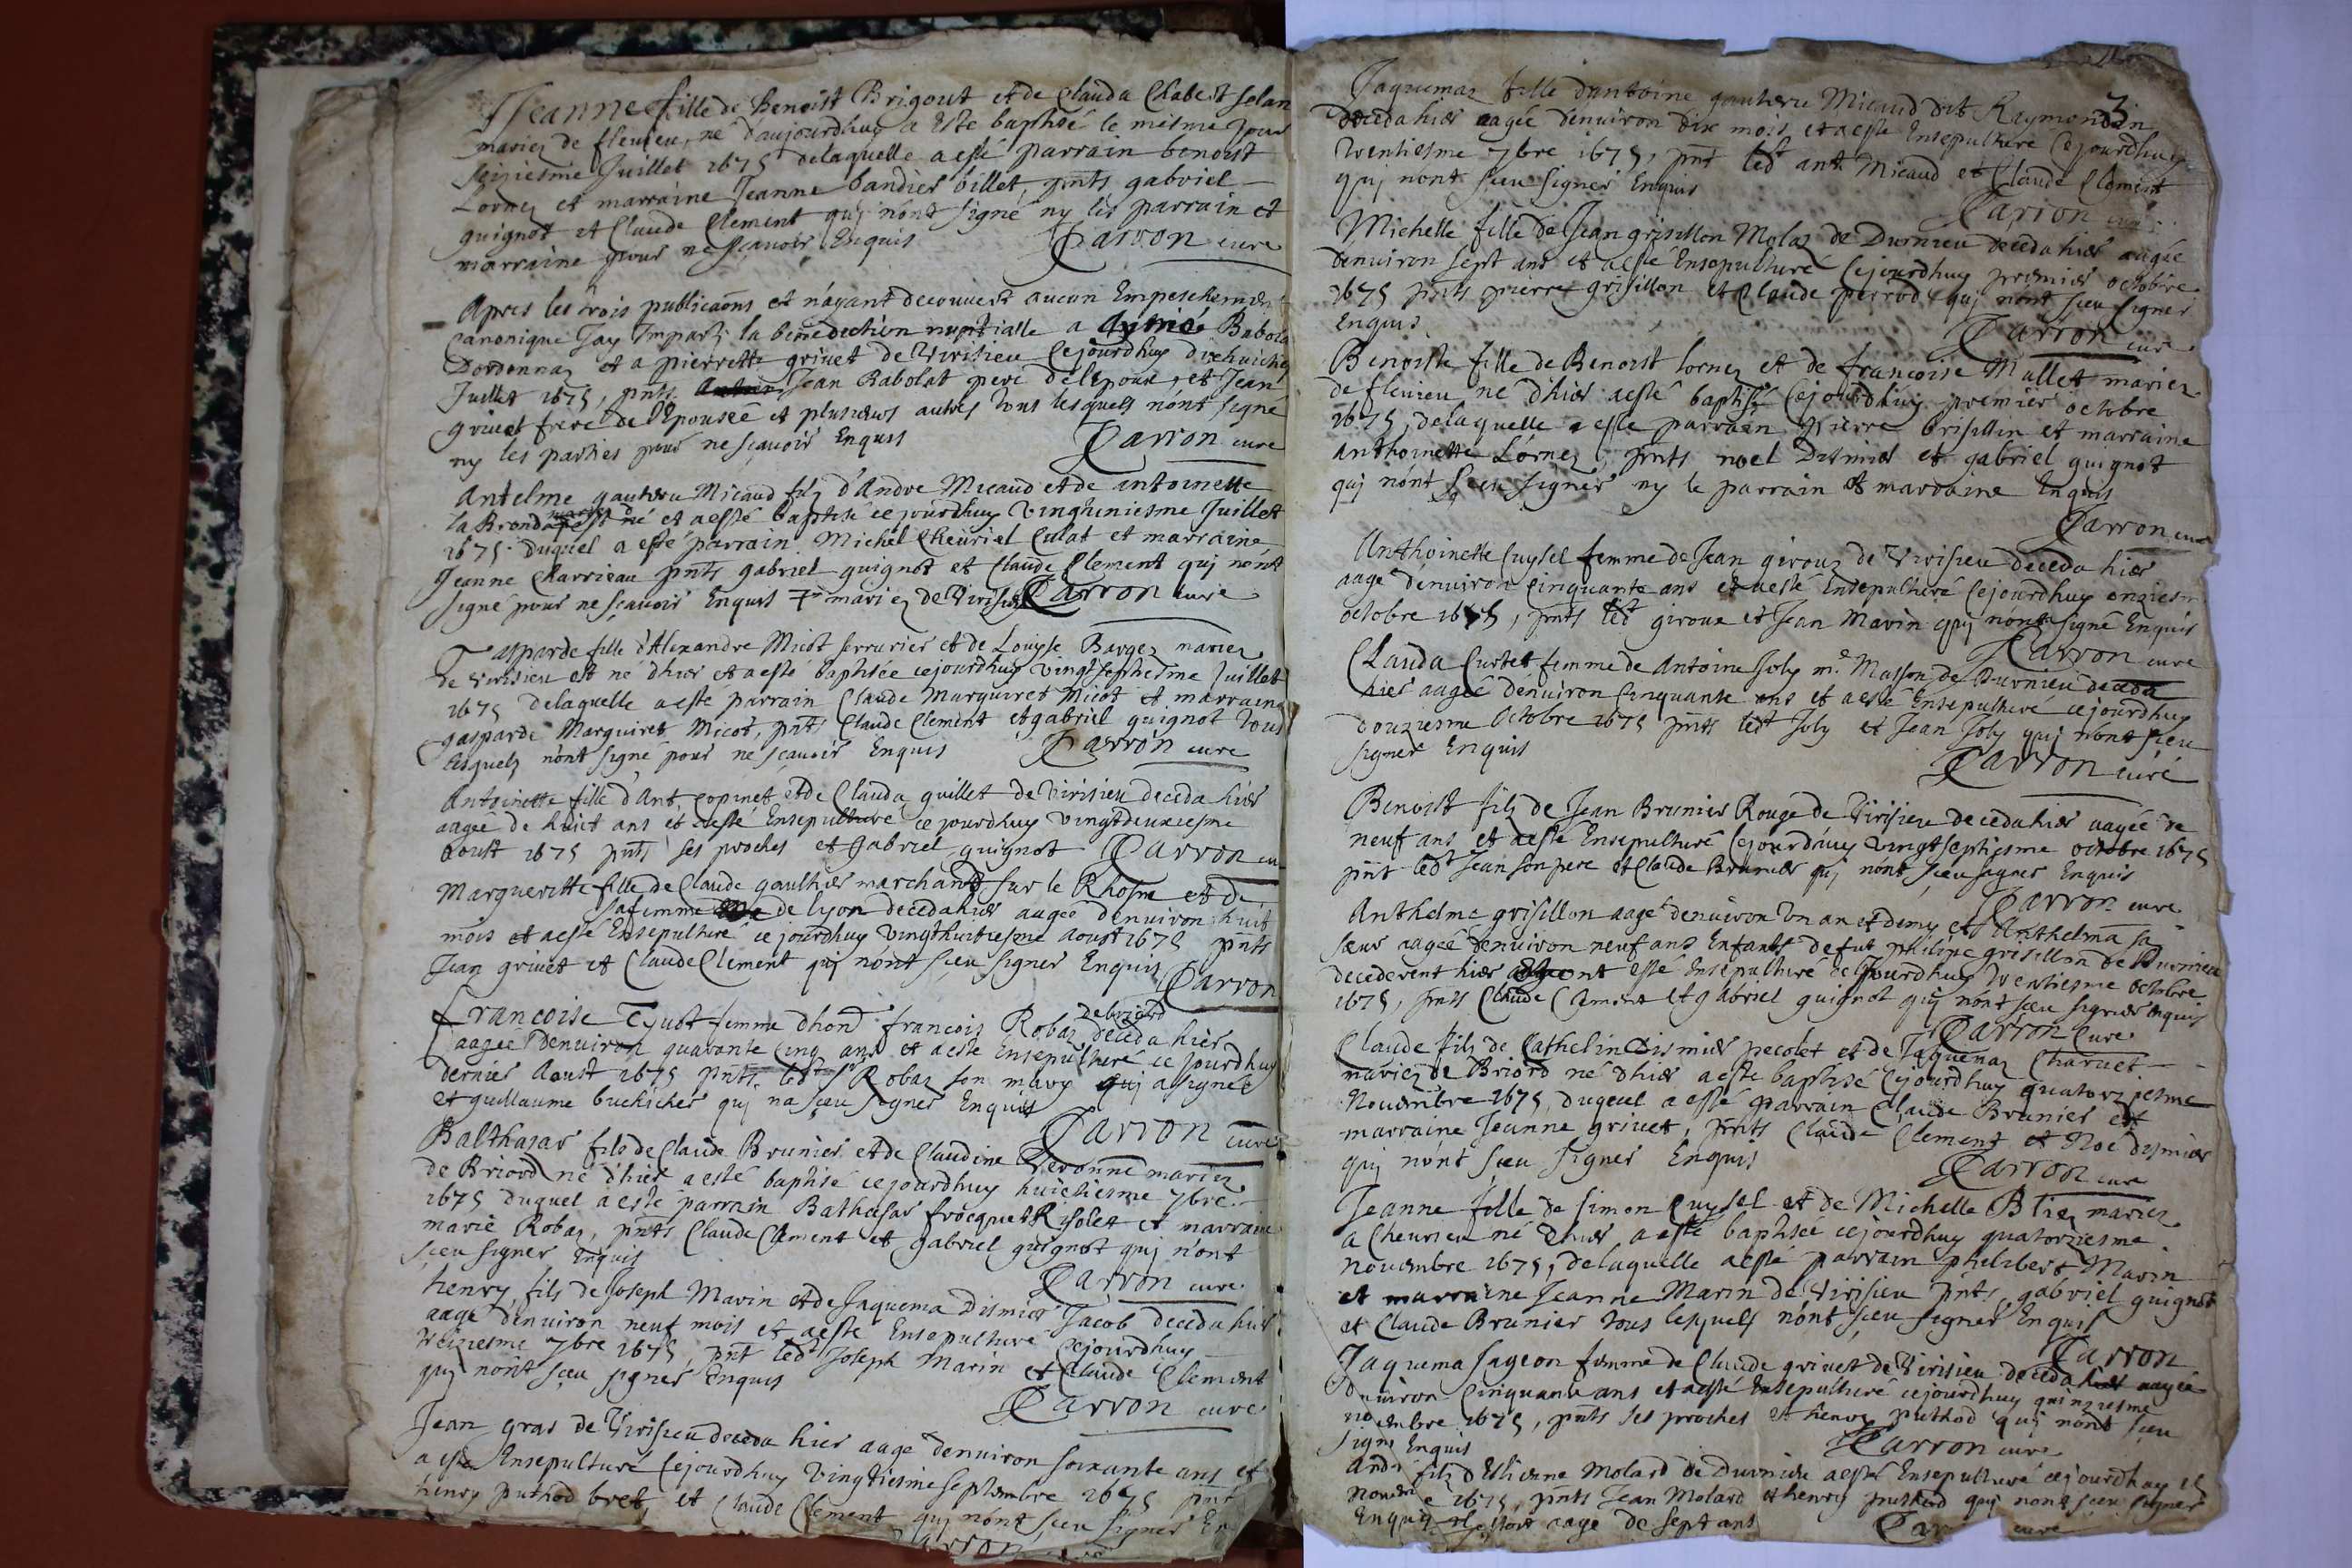 Jeanne fille de Benoist Brigout et de Clauda Chabert Jolan
mariez de fleurieu, né d'aujourdhuy a este baptisé le mesme Jour
seiziesme Juillet 1675 delaquelle a esté parrain benoist
Lornez et marraine Jeanne bandier billet, pnts gabriel
guignot et Claude Clement quj nont signé ny les parrain et
marraine pour ne sçauoir Enquis Carron cure
Apres les trois publicaons et n'ayant decouuert aucun Empeschement
Canonique Jay Imparti la benediction nuptialle a Aymé Babolat
Dordonnaz et a pierrette griuet de Virisieu Cejourdhuy dixhuicties
Juillet 1675, pnts Jean Babolat pere de lEpoux, et Jean
griuet frere de lEpousée et plusieurs autres tous lesquels n'ont signé
ny les parties pour ne sçauoir Enquis Carron cure
Antelme gautheru Micaud filz d'Andre Micaud et de antoinette
la Bronda est né et a esté baptisé cejourdhuy Vinghuniesme Juillet
1675. duquel a esté parrain Michel Cheuriel Culat et marraine
Jeanne Charrieau pnts gabriel guignot et Claude Clement quj nont
signé pour ne sçauoir Enquis mariez de Virisieu Carron cure
Gasparde fille d'Alexandre Micot serrurier et de Louyse Bargez mariez
de Virisieu est né dhier et a esté baptisée cejourdhuy vingtseptiesme Juillet
1675 delaquelle a esté parrain Claude Marguiret Micot et marraine
gasparde Marguiret Micot, pnts Claude Clement et gabriel guignot tous
lesquels nont signé pour ne sçauoir Enquis Carron cure
Antoinette fille d'Ant. Copinet et de Clauda guillet de Virisieu deceda hier
aagée de huict ans et a esté Ensepulturé cejourdhuy vingtdeuxiesme
aoust 1675 pnts ses proches et Gabriel guignot Carron cu
Margueritte fille de Claude gaulthier marchant sur le Rhosne et de
sa femme de lyon deceda hier aagée denuiron huit
mois et a esté Ensepulturé cejourdhuy vingthuitiesme aoust 1675 pnts
Jean griuet et Claude Clement quj nont sceu signer Enquis Carron
de briord
Francoise Tyuot femme dhond francois Robaz deceda hier
aagée denuiron quarante cinq ans et a esté Ensepulturé ce jourdhuy
dernier Aoust 1675 pnts led Sr Robaz son mary quj a signé
et guillaume buchicher quj na sceu signer Enquis
Carron cure
Balthasar fils de Claude Brunier et de Claudine Veronne mariez
de Briord né d'hier a esté baptisé cejourdhuy huictiesme 7bre
1675 duquel a esté parrain Bathasar frocquet Risolet et marraine
marie Robaz, pnts Claude Clement et gabriel guignot quj n'ont
sceu signer Enquis Carron cure
henry fils de Joseph Marin et de Jaquema Dismier Jacob deceda hier
aagé denuiron neuf mois et a esté Ensepulturé cejourdhuy
treiziesme 7bre 1675, pnt led Joseph Marin et Claude Clement
quj nont sceu signer Enquis
Carron cure
Jean gras de Virisieu deceda hier aagé denuiron soixante ans et
a esté Ensepulturé Cejourdhuy Vingtiesme Septembre 1675 pnt
henry puthod bret, et Claude Clement quj nont sceu signer En
Carron
3
Jaquemaz fille dantoine gautheru Micaud dit Raymondin
deceda hier aagée denuiron dix mois et a esté Ensepulturé Cejourdhuy
trentiesme 7bre 1675, pnt led anth Micaud et Claude Clement
quj nont sceu signer Enquis
Carron cure
Michelle fille de Jean grisillon Molaz de Durnieu deceda hier aagée
denuiron sept ans et a esté Ensepulturé Cejourdhuy premier octobre
1675 pnts pierre grisillon et Claude perrod quj nont sceu signer
Enquis
Carron cure
Benoiste fille de Benoist lornez et de francoise Mullet mariez
de fleurieu né d'hier a esté baptisé Cejourdhuy premier octobre
1675, delaquelle a esté parrain Pierre brisillin et marraine
anthoinette Lornez, pnts noel Dismier et gabriel guignot
quj nont sceu signer ny le parrain et marraine Enquis
Carron cure
Anthoinette Cuysel femme de Jean giroux de Virisieu deceda hier
aagé denuiron cinquante ans et a esté Ensepulturé Cejourdhuy onziesm
octobre 1675, pnts led giroux et Jean Marin quj nont signé Enquis
Carron cure
Clauda Curtet femme de Antoine Joly me. Masson de Durnieu deceda
hier aagée denuiron Cinquante ans et a esté Ensepulturé cejourdhuy
douziesme Octobre 1675 pnts led Joly et Jean Joly quj nont sceu
signer Enquis
Carron curé
Benoist filz de Jean Brunier Rouge de Virisieu deceda hier aagée de
neuf ans et a esté Ensepulturé Cejourdhuy Vingtseptiesme octobre 1675
pnt led Jean son pere et Claude Brunier quj nont sceu signer Enquis
Carron cure
Anthelme grisillon aagé denuiron Vn an et demy et Anthelma sa
sœur aagée denuiron neuf ans Enfants de fut philipe grisillon de Durnieu
decederent hier ont esté Ensepulturé cejourdhuy trentiesme octobre
1675, pnts Claude Clement et gabriel guignot quj nont sceu signer Enquis
Carron Cure
Claude filz de Cathelin Dismier pecolet et de Jaquemaz Charuet
mariez de Briord né d'hier a este baptisé Cejourdhuy quatorziesme
Nouembre 1675, duquel a esté parrain Claude Brunier et
marraine Jeanne griuet, pnts Claude Clement et Noé dismier
quj nont sceu signer Enquis
Carron cure
Jeanne fille de simon Cuysel et de Michelle Bliez mariez
a Cheurieu né d'hier a esté baptisée cejourdhuy quatorziesme
nouembre 1675, delaquelle a esté parrain philibert Marin
et marraine Jeanne Marin de Virisieu pnts gabriel guignot
et Claude Brunier tous lesquels n'ont sceu signer Enquis
Carron
Jaquema Jageon femme de Claude griuet de Virisieu deceda hier aagée
denuiron Cinquante ans et a esté Ensepulturé cejourdhuy quinziesme
nouembre 1675, pnts ses proches et henry puthod quj nont sceu
signe Enquis
Carron cure
André filz d'Estienne Molard de Durnieu a esté Ensepulturé cejourdhuy 15
Nouembre 1675, pnts Jean Molard et henry puthod quj nont sceu signer
Enquis Il estoit aagé de sept ans Carr cure